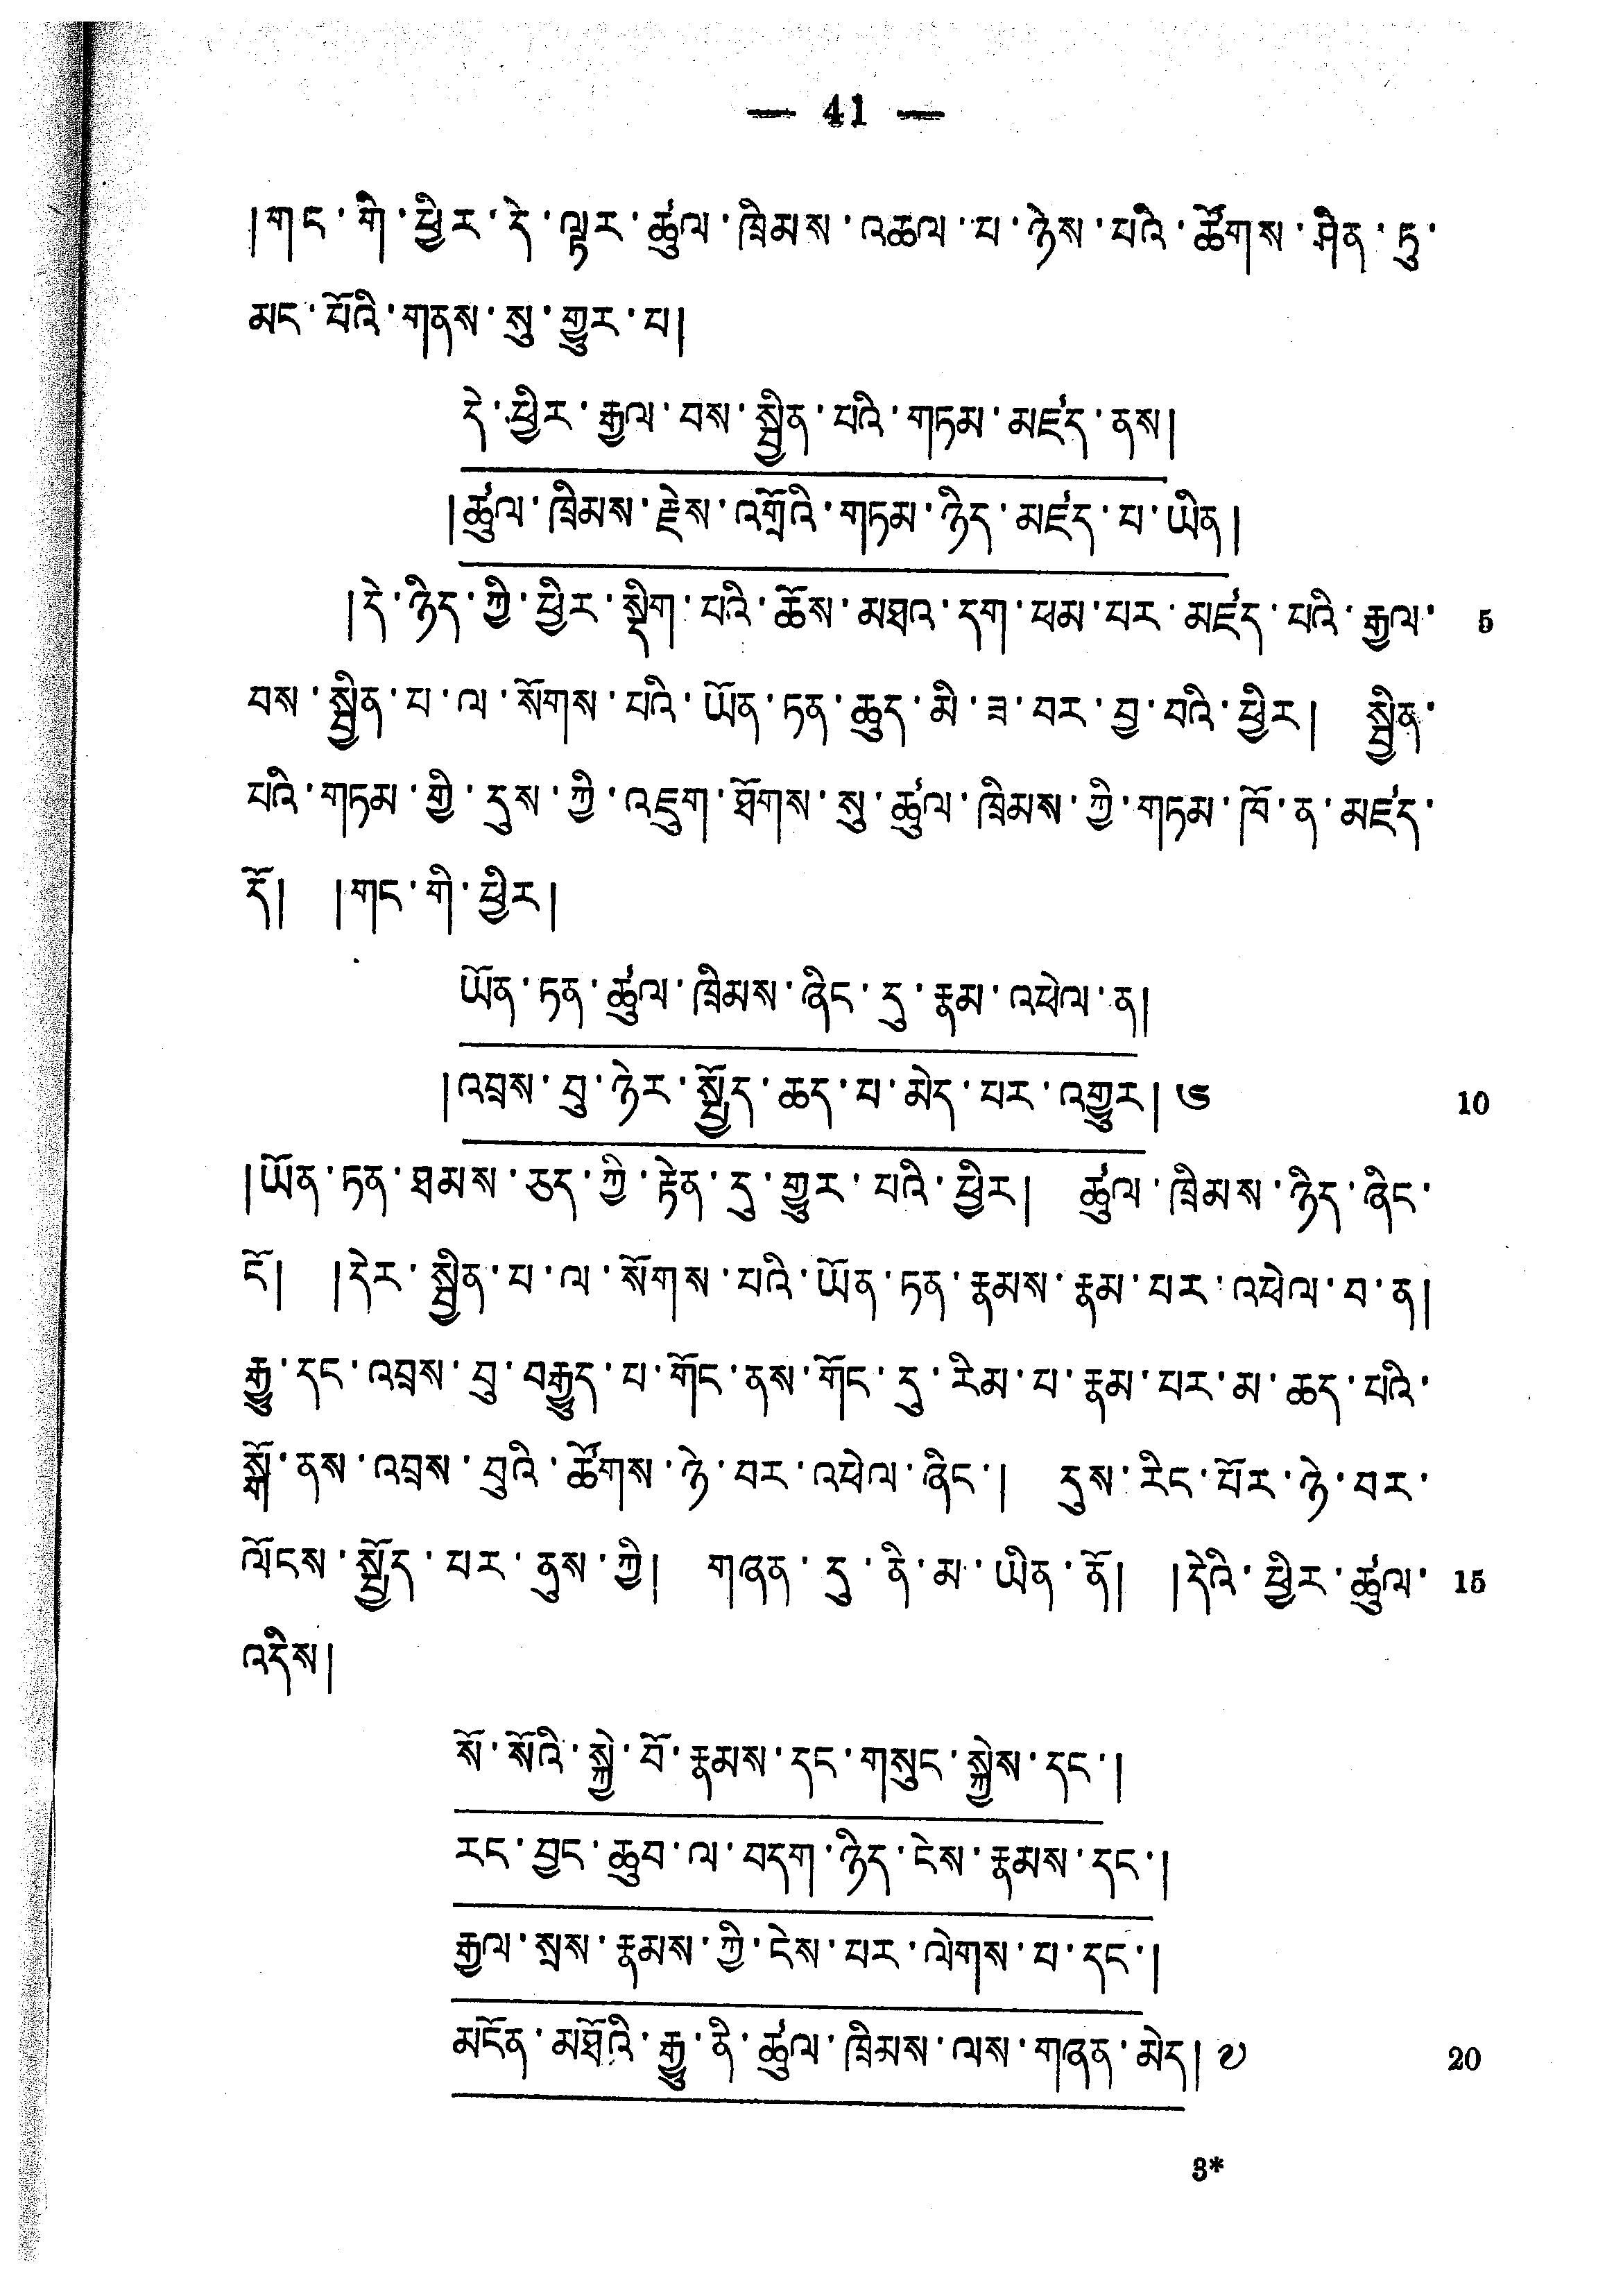 — 41 —
།གང་གི་ཕྱིར་དེ་ལྟར་ཚུལ་ཁྲིམས་འཆལ་པ་ཉེས་པའི་ཚོགས་ཤིན་ཏུ་
མང་པོའི་གནས་སུ་གྱུར་པ།
དེ་ཕྱིར་རྒྱལ་བས་སྦྱིན་པའི་གཏམ་མཛད་ནས།
།ཚུལ་ཁྲིམས་རྗེས་འགྲོའི་གཏམ་ཉིད་མཛད་པ་ཡིན།
།དེ་ཉིད་ཀྱི་ཕྱིར་སྡིག་པའི་ཆོས་མཐའ་དག་ཕམ་པར་མཛད་པའི་རྒྱལ་ 5
བས་སྦྱིན་པ་ལ་སོགས་པའི་ཡོན་ཏན་ཆུད་མི་ཟ་བར་བྱ་བའི་ཕྱིར། སྦྱིན་
པའི་གཏམ་གྱི་དུས་ཀྱི་འཇུག་ཐོགས་སུ་ཚུལ་ཁྲིམས་ཀྱི་གཏམ་ཁོ་ན་མཛད་
དོ། །གང་གི་ཕྱིར།
ཡོན་ཏན་ཚུལ་ཁྲིམས་ཞིང་དུ་རྣམ་འཕེལ་ན།
།འབྲས་བུ་ཉེར་སྤྱོད་ཆད་པ་མེད་པར་འགྱུར། ༦ 10
།ཡོན་ཏན་ཐམས་ཅད་ཀྱི་རྟེན་དུ་གྱུར་པའི་ཕྱིར། ཚུལ་ཁྲིམས་ཉིད་ཞིང་
ངོ། །དེར་སྦྱིན་པ་ལ་སོགས་པའི་ཡོན་ཏན་རྣམས་རྣམ་པར་འཕེལ་བ་ན།
རྒྱུ་དང་འབྲས་བུ་བརྒྱུད་པ་གོང་ནས་གོང་དུ་རིམ་པ་རྣམ་པར་མ་ཆད་པའི་
སྒོ་ནས་འབྲས་བུའི་ཚོགས་ཉེ་བར་འཕེལ་ཞིང་། དུས་རིང་པོར་ཉེ་བར་
ལོངས་སྤྱོད་པར་ནུས་ཀྱི། གཞན་དུ་ནི་མ་ཡིན་ནོ། །དེའི་ཕྱིར་ཚུལ་ 15
འདིས།
སོ་སོའི་སྐྱེ་བོ་རྣམས་དང་གསུང་སྐྱེས་དང་།
རང་བྱང་ཆུབ་ལ་བདག་ཉིད་ངེས་རྣམས་དང་།
རྒྱལ་སྲས་རྣམས་ཀྱི་ངེས་པར་ལེགས་པ་དང་།
མངོན་མཐོའི་རྒྱུ་ནི་ཚུལ་ཁྲིམས་ལས་གཞན་མེད། ༧ 20
3*